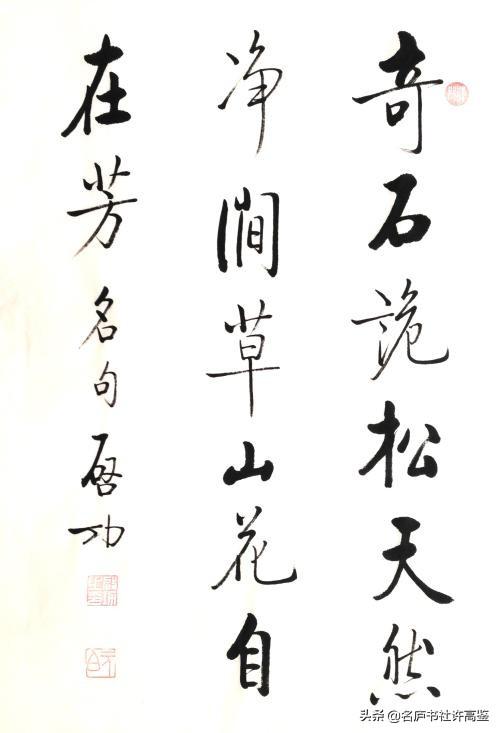 奇石詭松天然
净澗草山花自
在芳 名句 啓功
头条 @名庐书社许高鉴